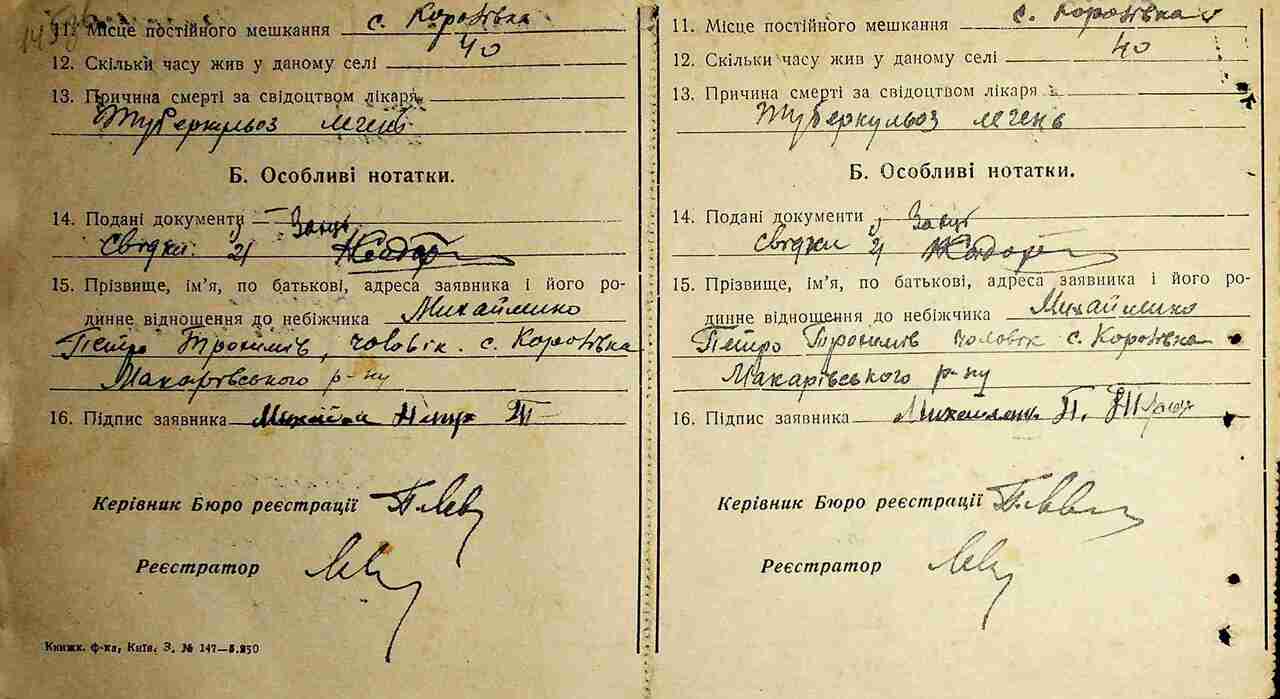 11. Місце постійного мешкання с. Королівка
12. Скільки часу жив у даному селі 40
13. Причина смерті за свідоцтвом лікаря
Туберкульоз легень
Б. Особливі нотатки.
14. Подані документи
Свідки: 2)
15. Прізвище, ім'я, по батькові, адреса заявника і його ро-
динне відношення до небіжчика Михайленко
Петро Трохимів, чоловік. с. Королівка
Макарівського р-ну
16. Підпис заявника
Керівник Бюро реєстрації
Реєстратор
Книжк. ф-ка, Київ. З. № 147—5.250
11. Місце постійного мешкання с. Королівка
12. Скільки часу жив у даному селі 40
13. Причина смерті за свідоцтвом лікаря
Туберкульоз легень
Б. Особливі нотатки.
14. Подані документи
Свідки 2)
15. Прізвище, ім'я, по батькові, адреса заявника і його ро-
динне відношення до небіжчика Михайленко
Петро Трохимів чоловік с. Королівка
Макарівського р-ну
16. Підпис заявника
Керівник Бюро реєстрації
Реєстратор